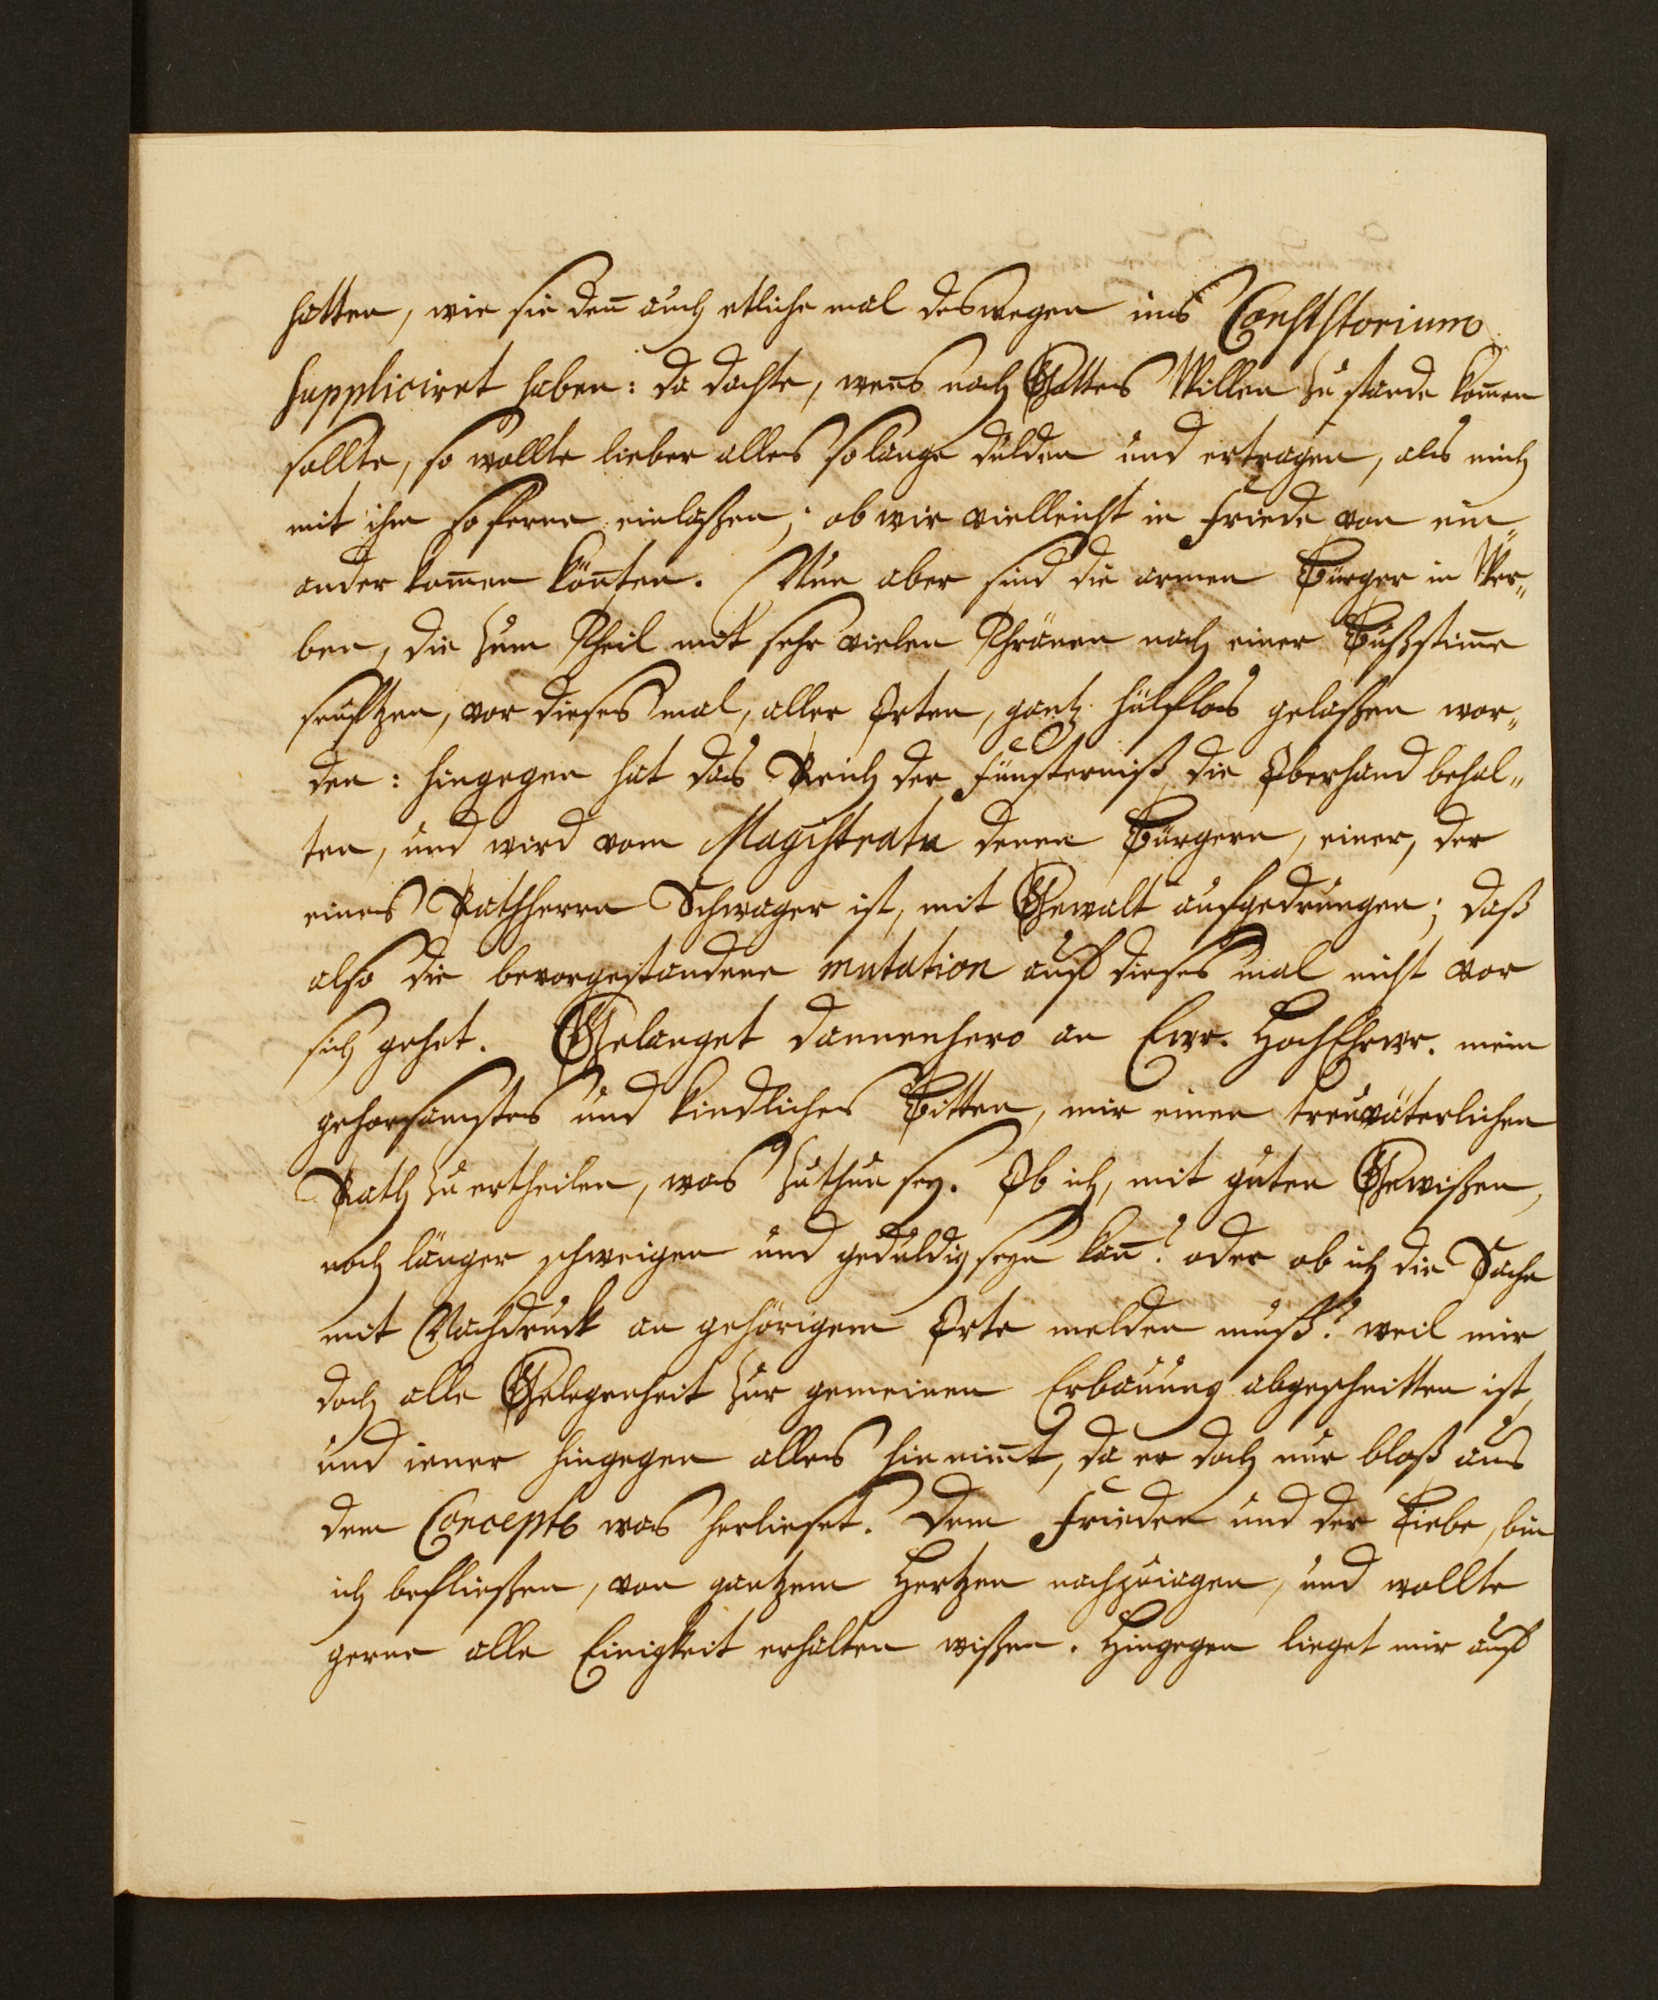 hatten, wie sie deñ auch etliche mal deswegen ins Consistorium
suppliciret haben: da dachte, wens nach Gottes Willen zu stande kom̃en
sollte, so wollte lieber alles so lange dulden und ertragen, als mich
mit ihm so ferne einlaßen; ob wir vielleicht in Friede von ein„
ander kom̃en köñten. Nun aber sind die armen Bürger in Wer„
ben, die zum Theil mit sehr vielen Thränen nach einer Bußstim̃e
seufftzen, vor dieses mal, aller Orten, gantz hülflos gelaßen wor„
den: hingegen hat das Reich der Fünsterniß die Oberhand behal„
ten, und wird vom Magistratu denen Bürgern, einer, der
eines Rathherrn Schwager ist, mit Gewalt aufgedrungen; daß
also die bevorgestandene mutation auf dieses mal nicht vor
sich gehet. Gelanget dannenhero an Ewr. HochEhrwr. mein
gehorsamstes und kindliches Bitten, mir einen treuväterlichen
Rath zu ertheilen, was zuthun sey. Ob ich, mit guten Gewißen,
noch länger schweigen und geduldig seyn kañ? oder ob ich die Sache
mit Nachdruck an gehörigem Orte melden muß? weil mir
doch alle Gelegenheit zur gemeinen Erbauung abgeschnitten ist,
und iener hingegen alles hin nim̃t, da er doch nur bloß aus
dem Concepte was herlieset. Dem Frieden und der Liebe, bin
ich befließen, von gantzem Hertzen nachzuiagen, und wollte
gerne alle Einigkeit erhalten wißen. Hingegen lieget mir auf